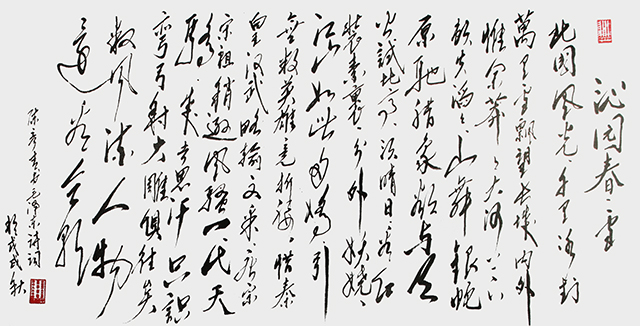 沁园春·雪
北国風光、千里冰封
萬里雪飄望長城内外
惟余莽々大河上下
頓失滔々山舞銀蛇
原馳腊象欲与天
公試比高須晴日看红
装素裹分外妖娆
江山如此多嬌引
無数英雄竞折腰惜秦
皇汉武略输文采唐宗
宋祖稍逊風骚一代天
驕成吉思汗只識
彎弓射大雕俱往矣
数風流人物
還看今朝
书毛泽东诗词
於戊戌秋